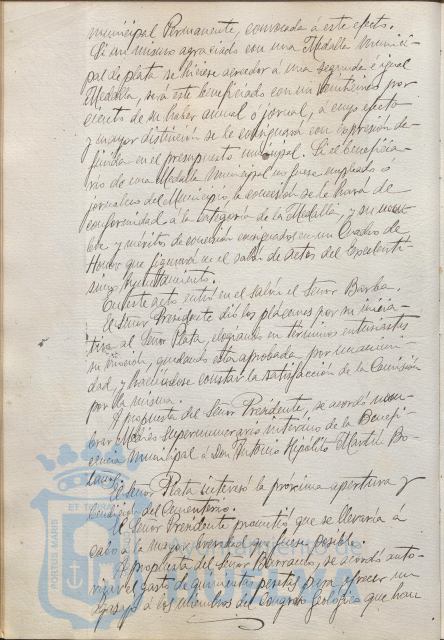 municipal Permanente, convocada á este efecto.
Si un mismo agraciado con una Medalla Munici-
pal de plata se hiciese acreedor á una segunda é igual
Medalla, será este beneficiado con un por
ciento de su haber anual ó jornal, á cuyo efecto
y mayor distinción se le consignará con expresión de-
finida en el presupuesto municipal. Si el beneficia-
rio de una Medalla Municipal no fuese empleado ó
jornalero del Municipio, la concesión se le hará de
conformidad á la categoría de la Medalla, y su nom-
bre y méritos de concesión consignados en un Cuadro de
Honor que figurará en el salón de actos del Excelentí-
simo Ayuntamiento.
En este acto entró en el salón el Señor Barba.
El Señor Presidente dió los plácemes por su inicia-
tiva al Señor Plata, elogiando en términos entusiastas
su moción, quedando esta aprobada por unanimi-
dad, y haciéndose constar la satisfacción de la Comisión
por la misma.
A propuesta del Señor Presidente, se acordó nom-
brar Médico supernumerario interino de la Benefi-
cencia Municipal á Don Antonio Hipólito Martín Bo-
El Señor Plata interesó la próxima apertura y
bendición del Cementerio.
El Señor Presidente prometió que se llevaría á
cabo á la mayor brevedad que fuese posible.
A propuesta del Señor Barranco, se acordó auto-
rizar el gasto de quinientas pesetas para ofrecer un
á los miembros del Congreso Geológico que han
PORTUS MARIS
ET TERRÆ
Ayuntamiento de
HUELVA